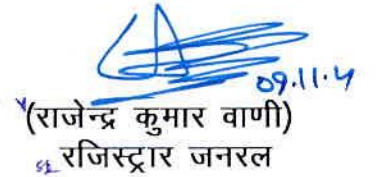 09.11.4
(राजेन्द्र कुमार वाणी)
रजिस्ट्रार जनरल